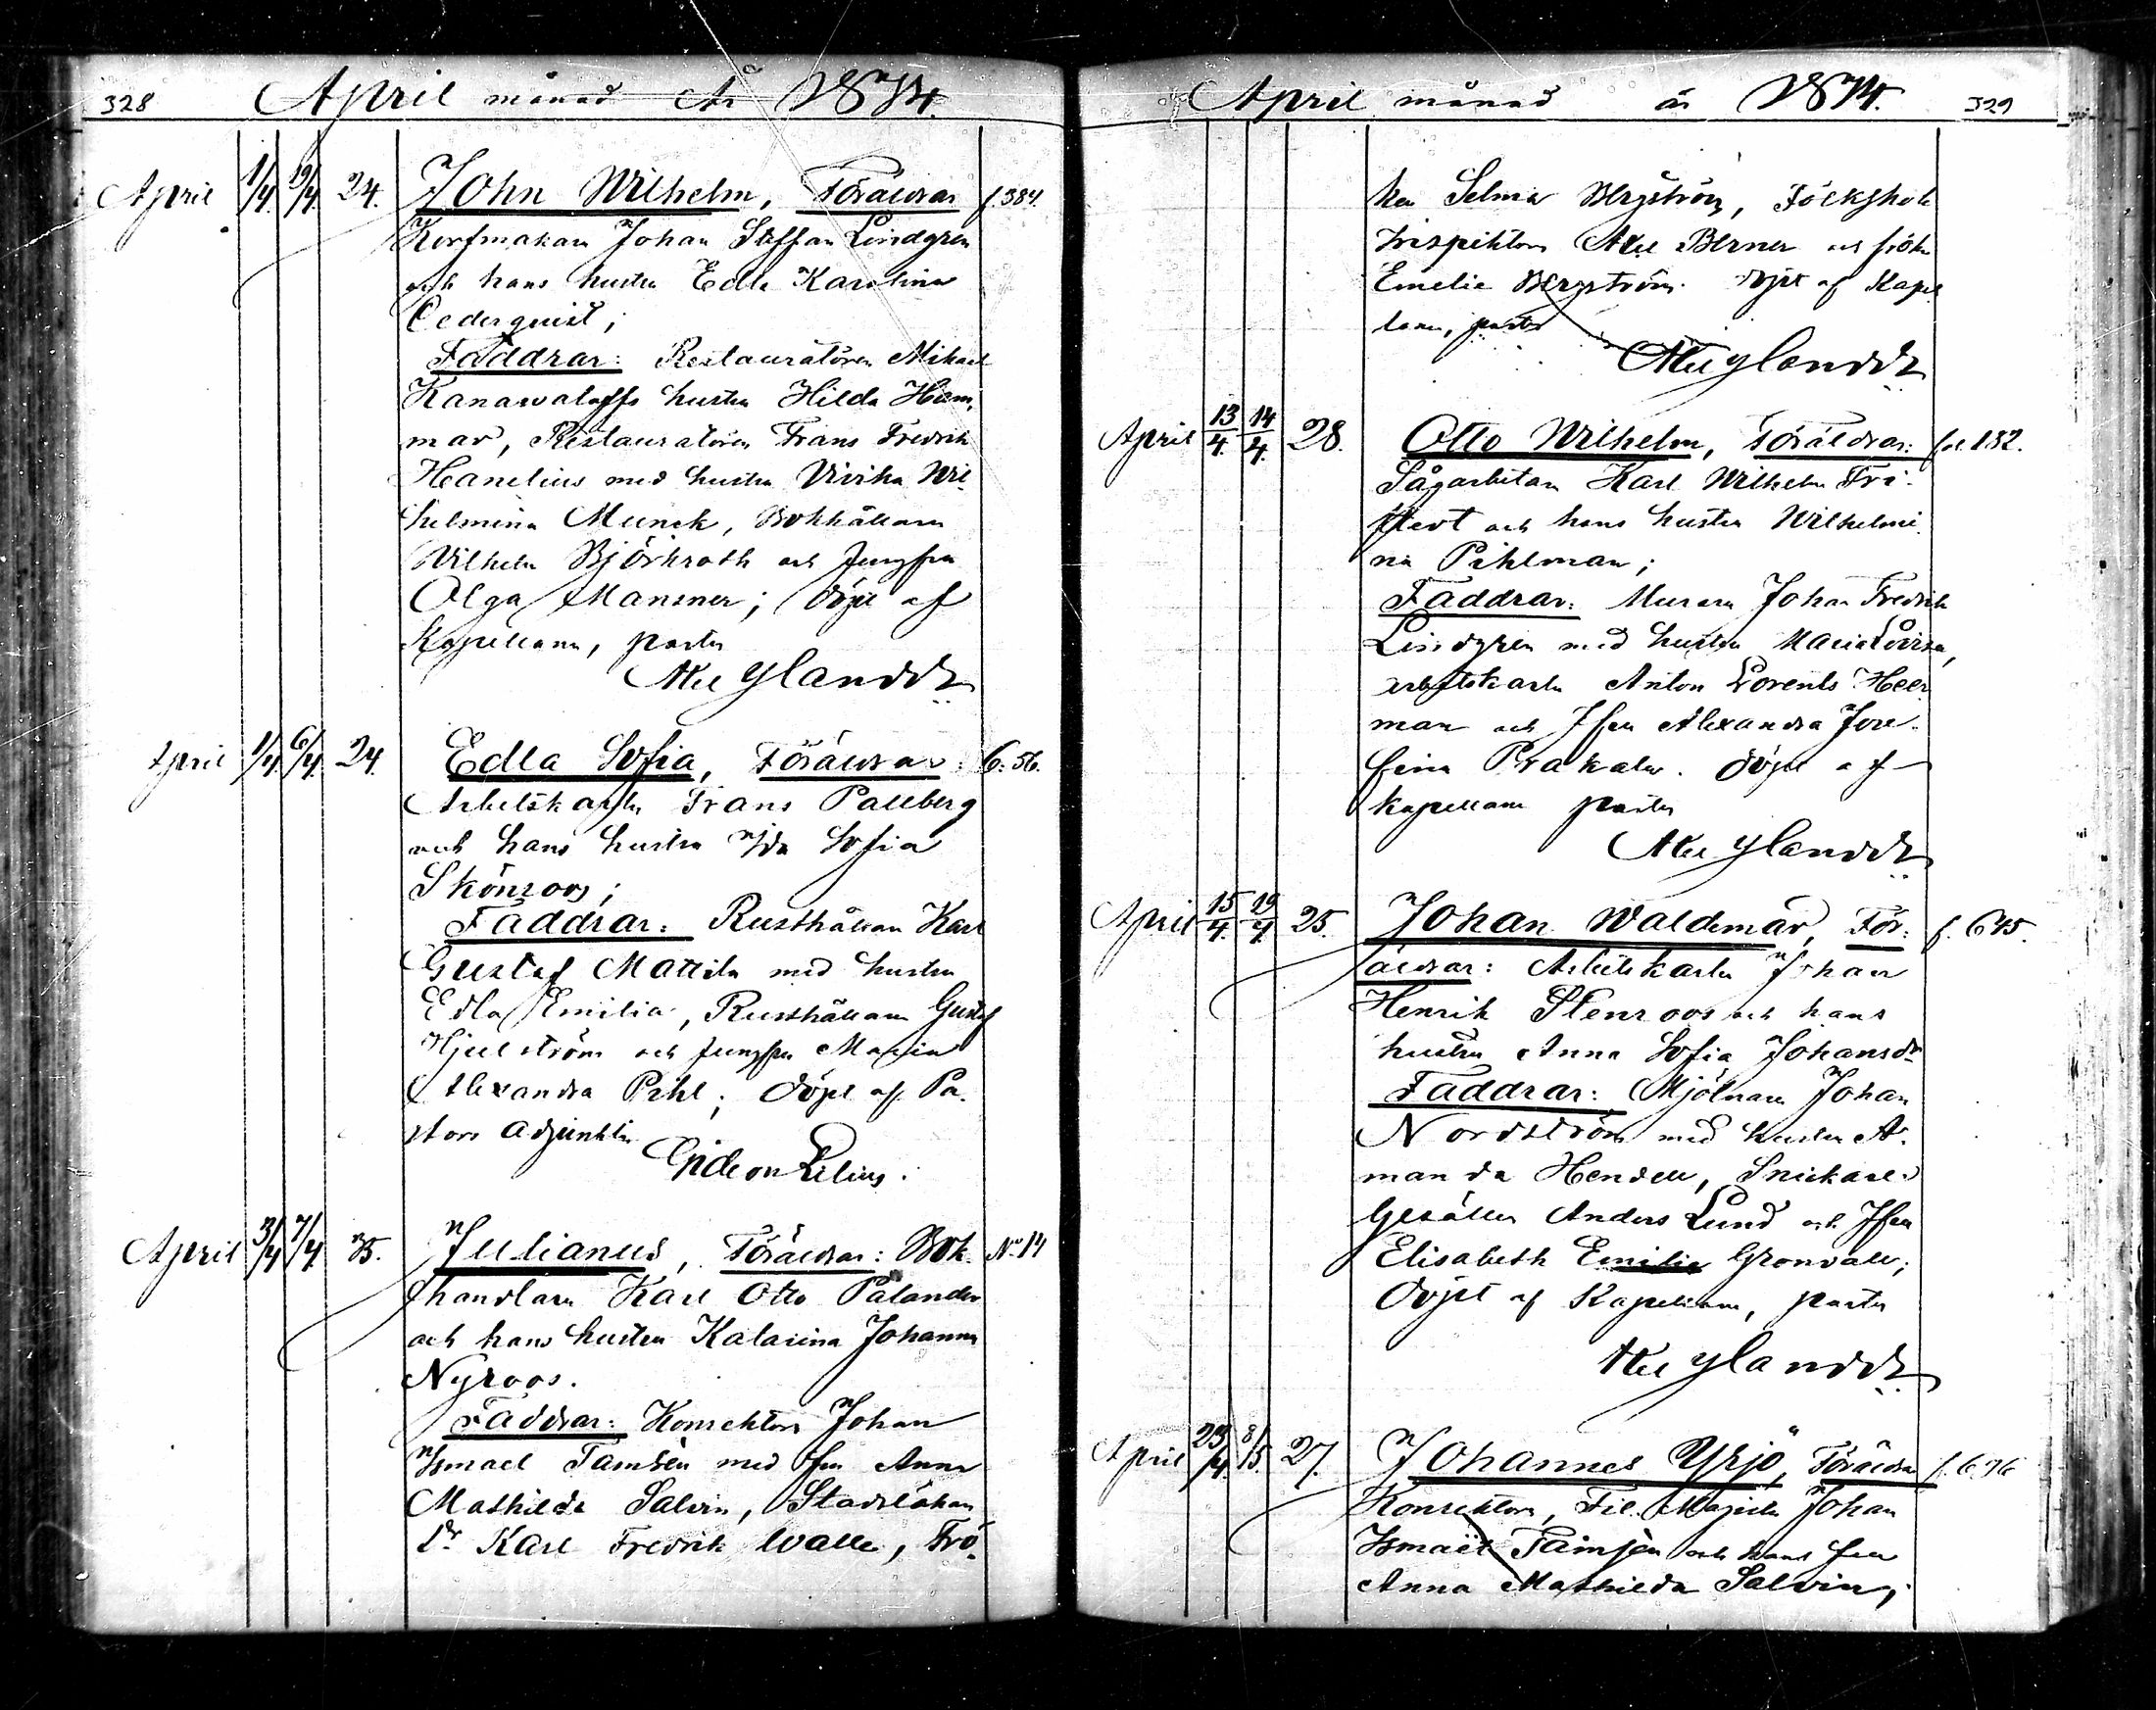 328 April månad År 1874.
April 1/4. 19/4. 24. John Wilhelm, Föräldrar f. 384.
Korfmakaren Johan Staffan Lindgren
och hans hustru Edla Karolina
Cederquist;
Faddrar: Restauratören Mikael
Kanawaloffs hustru Hilda Ham,
mar, Restauratören Frans Fredrik
Hanelius med hustru Vivika Wil-
helmina Munck, Bokhållaren
Wilhelm Björkroth och Jungfru
Olga Mansner; döpt af
Kapellanen, pastor
Ylander
April 1/4. 6/4. 24. Edla Sofia, Föräldrar: 6: 56.
Arbetskarlen Frans Pallberg
och hans hustru Ida Sofia
Skönroos;
Faddrar: Rusthållaren Karl
Gustaf Mattila med hustru
Edla Emilia, Rusthållaren Gustaf
Hjelström och Jungfru Maria
Alexandra Pihl; döpt af Pa-
stors Adjunkten
Gideon Lilius.
April 3/4 7/4. 35. Julianus, Föräldrar: Bok- No 14
handlaren Karl Otto Palander
och hans hustru Katarina Johanna
Nyroos.
Faddrar: Konrektorn Johan
Ismael Tamsén med fru Anna
Mathilda Salvin, Stadsläkaren
Dr Karl Fredrik Walle, Frö-
April månad år 1874. 329
ken Selma Bergström, Folkskole
Inspektorn Axel Berner och fröken
Emelie Bergström. döpt af Kapel
lanen, pastor
Ylander
April 13/4. 14/4. 28. Otto Wilhelm, Föräldrar: fol. 182.
Sågarbetaren Karl Wilhelm Fri-
och hans hustru Wilhelmi-
na Pihlman;
Faddrar: Muraren Johan Fredrik
Lindgren med hustru Maria Lovisa,
arbetskarlen Anton Lorents Heer
man och Jfru Alexandra Jose-
fina Prakala. döpt af
kapellanen pastor
Ylander
April 15/4. 19/4. 25. Johan Waldemar, För- f. 645.
äldrar: Arbetskarlen Johan
Henrik Stenroos och hans
hustru Anna Sofia Johansdr
Faddrar: Mjölnaren Johan
Nordström med hustru A-
manda Hendell, Snickare-
Gesällen Anders Lund och Jfru
Elisabeth Emilia Gronvall;
döpt af Kapellanen, pastor
Ylander
April 23/4. 8/5. 27. Johannes Yrjö, Föräldrar f. 676
Konrektorn, Fil. Magister Johan
Ismaël Tamsén och hans fru
Anna Mathilda Salvin;